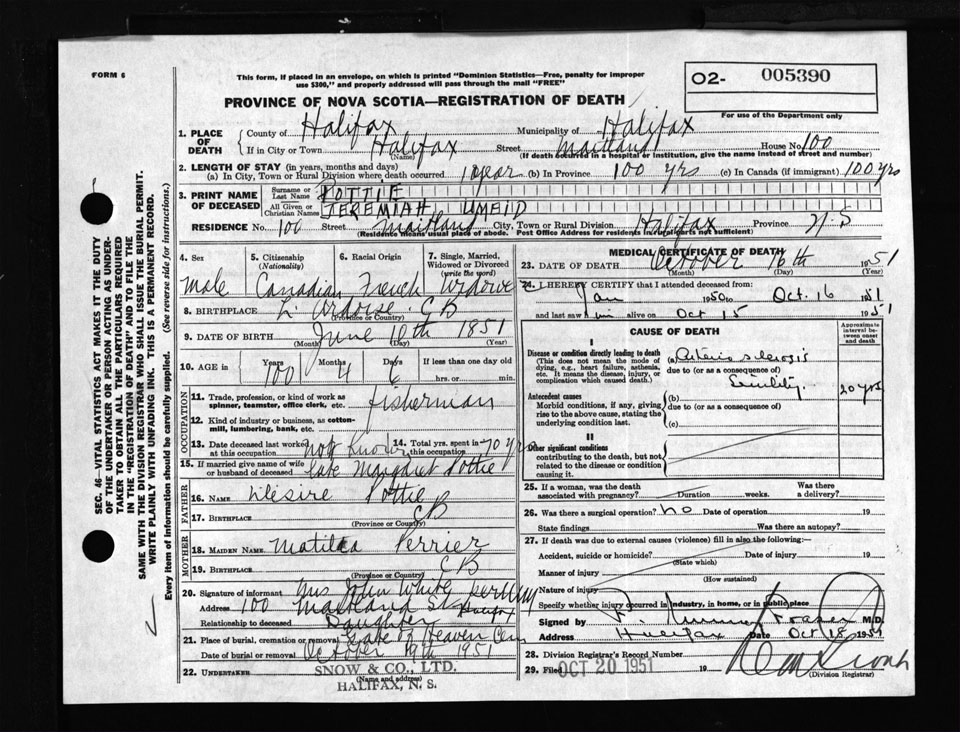 FORM 6
This form, if placed in an envelope, on which is printed "Dominion Statistics—Free, penalty for improper
use $300," and properly addressed will pass through the mail "FREE"
O2- 005390
PROVINCE OF NOVA SCOTIA—REGISTRATION OF DEATH
For use of the Department only
1. PLACE OF DEATH { County of Halifax Municipality of Halifax
If in City or Town Halifax (Name) Street Maitland House No. 100
(If death occurred in a hospital or institution, give the name instead of street and number)
2. LENGTH OF STAY (in years, months and days)
(a) In City, Town or Rural Division where death occurred 1 year (b) In Province 100 yrs (c) In Canada (if immigrant) 100 yrs
3. PRINT NAME OF DECEASED { Surname or Last Name POTTIE
All Given or Christian Names JEREMIAH UMEID
RESIDENCE No. 100 Street Maitland City, Town or Rural Division Halifax Province N.S
(Residence means usual place of abode. Post Office Address for residents in rural parts is not sufficient)
4. Sex Male
5. Citizenship (Nationality) Canadian
6. Racial Origin French
7. Single, Married, Widowed or Divorced (write the word)
8. BIRTHPLACE L'Ardoise CB
(Province or Country)
9. DATE OF BIRTH June 10th 1851
(Month) (Day) (Year)
10. AGE in { Years 100 Months 4 Days 6 If less than one day
hrs. or min.
OCCUPATION
11. Trade, profession, or kind of work as spinner, teamster, office clerk, etc. fisherman
12. Kind of industry or business, as cotton-mill, lumbering, bank, etc.
13. Date deceased last worked at this occupation not known 14. Total yrs. spent in this occupation 70 yrs
15. If married give name of wife or husband of deceased late Margaret Pottie
FATHER
16. NAME Desire Pottie
17. BIRTHPLACE CB
(Province or Country)
MOTHER
18. MAIDEN NAME Matilda Perrier
19. BIRTHPLACE CB
(Province or Country)
20. Signature of informant Mrs John White
Address 100 Maitland St Halifax
Relationship to deceased Daughter
21. Place of burial, cremation or removal Gate of Heaven Cem
Date of burial or removal October 19th 1951
22. UNDERTAKER SNOW & CO., LTD.
(Name and address)
HALIFAX, N. S.
MEDICAL CERTIFICATE OF DEATH
23. DATE OF DEATH October 16th 1951
(Month) (Day) (Year)
24. I HEREBY CERTIFY that I attended deceased from:
Jan 1950 to Oct. 16 1951
and last saw him alive on Oct 15 1951
CAUSE OF DEATH
Approximate interval between onset and death
I
Disease or condition directly leading to death (a) Arteriosclerosis
(This does not mean the mode of dying, e.g., heart failure, asthenia, etc. It means the disease, injury, or complication which caused death.)
due to (or as a consequence of)
Senility 20 yrs
Antecedent causes
Morbid conditions, if any, giving rise to the above cause, stating the underlying condition last.
(b)
due to (or as a consequence of)
(c)
II
Other significant conditions
contributing to the death, but not related to the disease or condition causing it.
25. If a woman, was the death associated with pregnancy? Duration weeks. Was there a delivery?
26. Was there surgical operation? no Date of operation 19
State findings Was there an autopsy?
27. If death was due to external causes (violence) fill in also the following:—
Accident, suicide or homicide? Date of injury 19
(State which)
Manner of injury
(How sustained)
Nature of injury
Specify whether injury occurred in industry, in home, or in public place
Signed by M.D.
Address Halifax Date Oct 18 1951
28. Division Registrar's Record Number
29. Filed OCT 20 1951 19
(Division Registrar)
SEC. 46—VITAL STATISTICS ACT MAKES IT THE DUTY
OF THE UNDERTAKER OR PERSON ACTING AS UNDER-
TAKER TO OBTAIN ALL THE PARTICULARS REQUIRED
IN THE "REGISTRATION OF DEATH" AND TO FILE THE
SAME WITH THE DIVISION REGISTRAR WHO SHALL ISSUE THE BURIAL PERMIT.
WRITE PLAINLY WITH UNFADING INK. THIS IS A PERMANENT RECORD.
Every item of information should be carefully supplied. (See reverse side for instructions.)